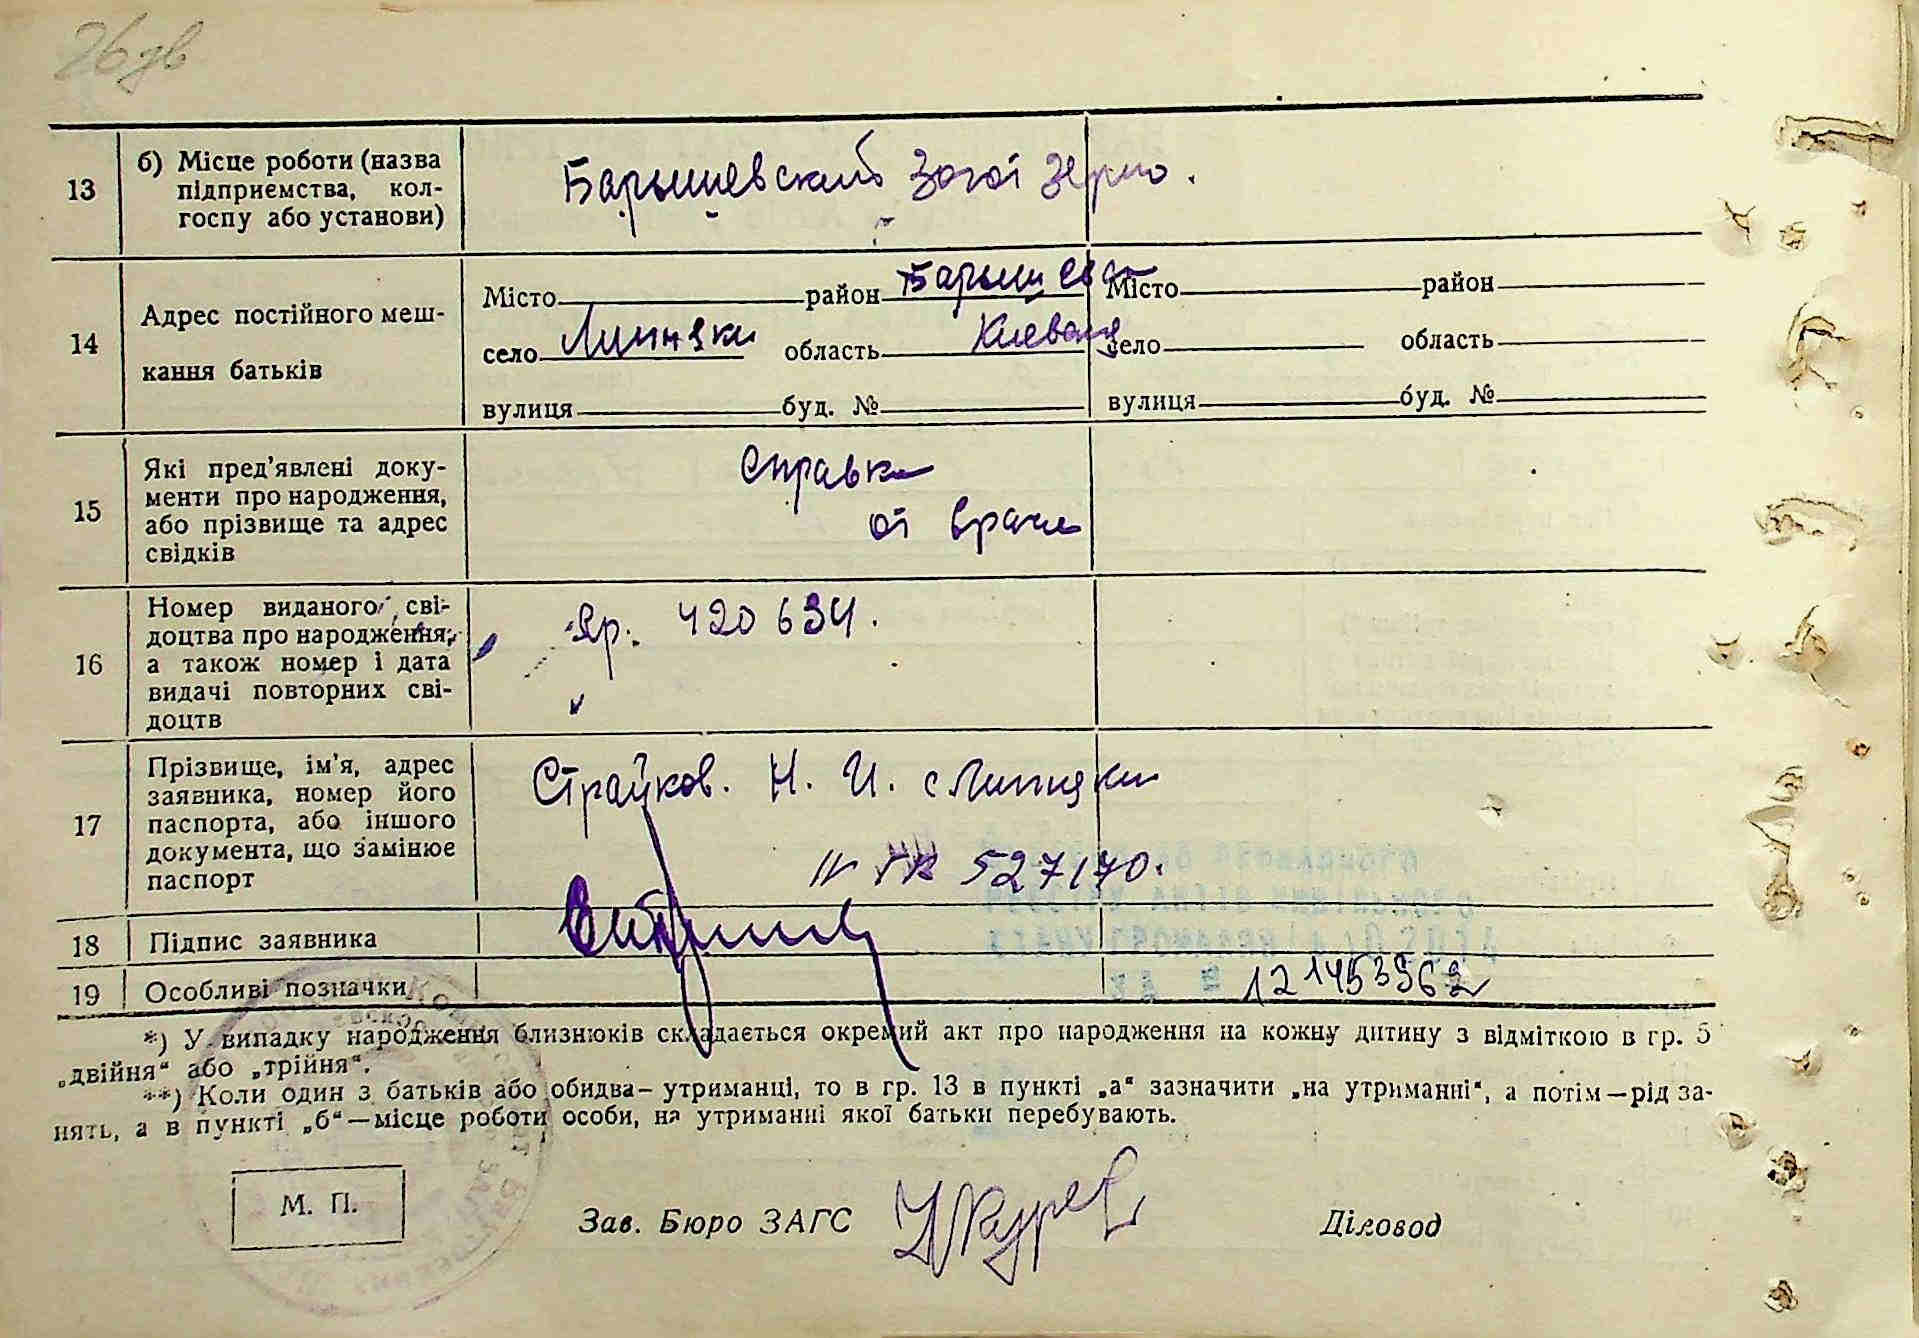 26 зв
13
б) Місце роботи (назва
підприємства, кол-
госпу або установи)
Барышевский Загот Зерно.
14
Адрес постійного меш-
кання батьків
Місто район Барышев Місто район
село Липняки область Киевская село область
вулиця буд. № вулиця буд. №
15
Які пред'явлені доку-
менти про народження,
або прізвище та адрес
свідків
Справка
от врача
16
Номер виданого сві-
доцтва про народження,
а також номер і дата
видачі повторних сві-
доцтв
420634.
17
Прізвище, ім'я, адрес
заявника, номер його
паспорта, або іншого
документа, що замінює
паспорт
Н. И. с Липняки
527170.
18 Підпис заявника
19 Особливі позначки
*) У випадку народження близнюків складається окремий акт про народження на кожну дитину з відміткою в гр. 5
„двійня“ або „трійня“.
**) Коли один з батьків або обидва—утриманці, то в гр. 13 в пункті „а“ зазначити „на утриманні“, а потім—рід за-
нять, а в пункті „б“—місце роботи особи, на утриманні якої батьки перебувають.
М. П.
Зав. Бюро ЗАГС
Діловод